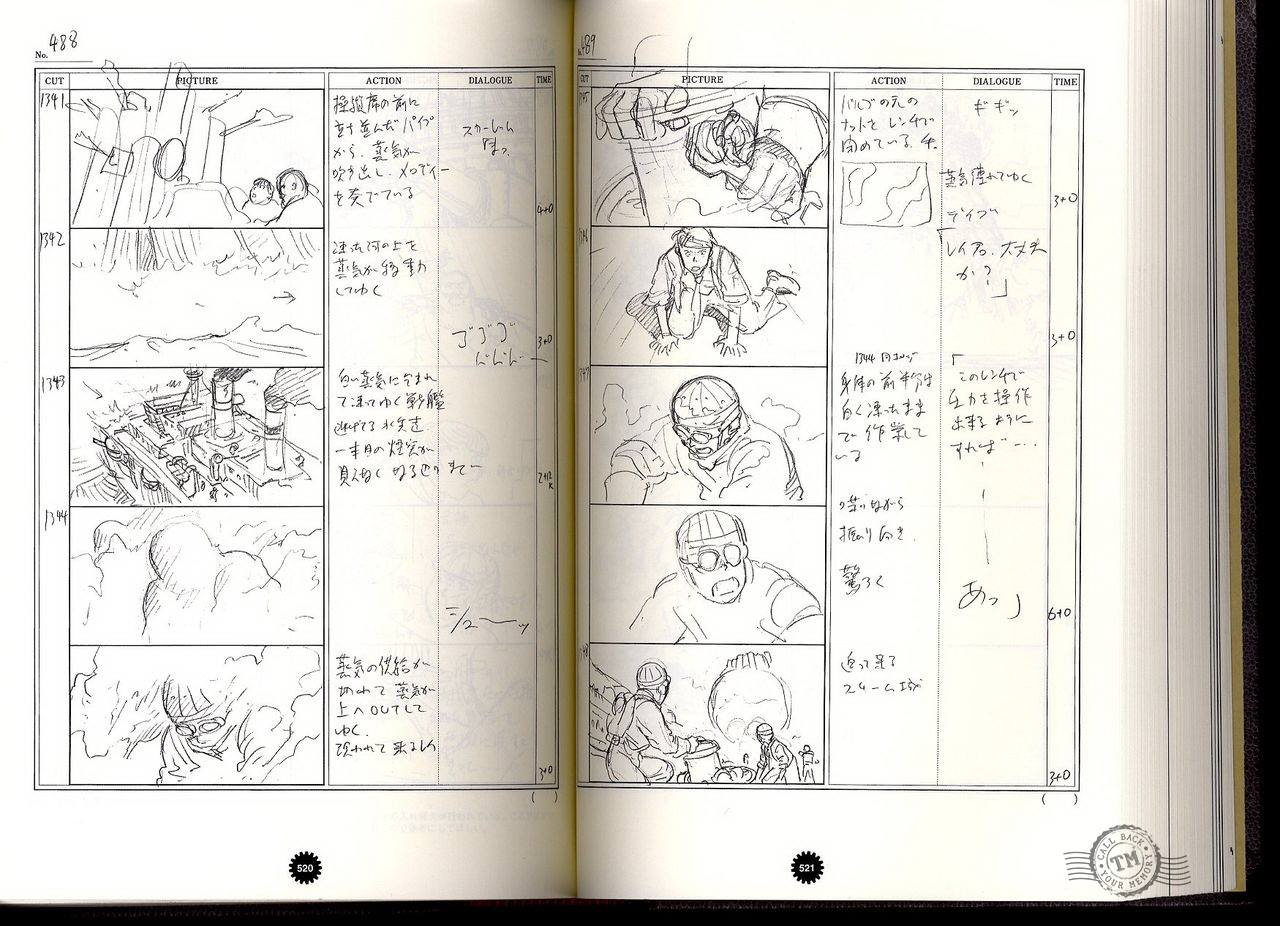 No. 488
CUT PICTURE ACTION DIALOGUE TIME
1341
操縦席の前に
立ち並んだパイプ
から、蒸気が
吹き出し、メロディー
を奏でている
4+0
1342
凍った河の上を
蒸気が移動
してゆく
ゴゴゴ
3+0
1343
白い蒸気に包まれ
て凍ってゆく戦艦
逃げてる水兵達
一本目の煙突が
見えなくなる辺りまで
1344
シュ――ッ
蒸気の供給が
切れて蒸気が
上へOUTして
ゆく.
現われて来る
3+0
( )
520
489
CUT PICTURE ACTION DIALOGUE TIME
バルブの元の
ナットをレンチで
閉めている、手.
ギギッ
蒸気
3+0
レイ 大丈夫
か?」
3+0
1344
身体の前半分は
白く凍ったまま
で作業して
いる
「
このレンチで
圧力を操作
出来るように
すれば…
振り向き.
驚ろく
あっ」
6+0
迫って来る
スチーム城
3+0
( )
521
CALL BACK
TM
YOUR MEMORY